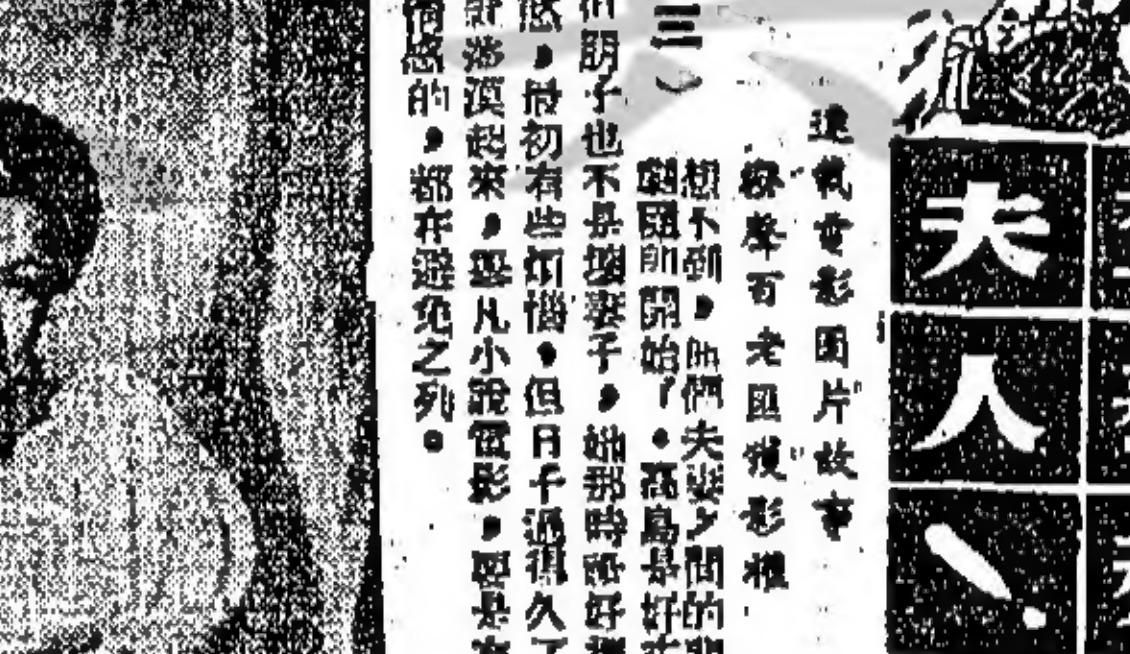 夫人、
連載電影圖片故事
聲百老匯獲影權
三）
想不到，他們夫妻之間的
開始了。高島是好
朋子也不是壞妻子，她那時好
感，最初有些煩惱。但日子過得久了
漸淡漠起來，舉凡小說電影，要是有
情感的，都在避免之列。